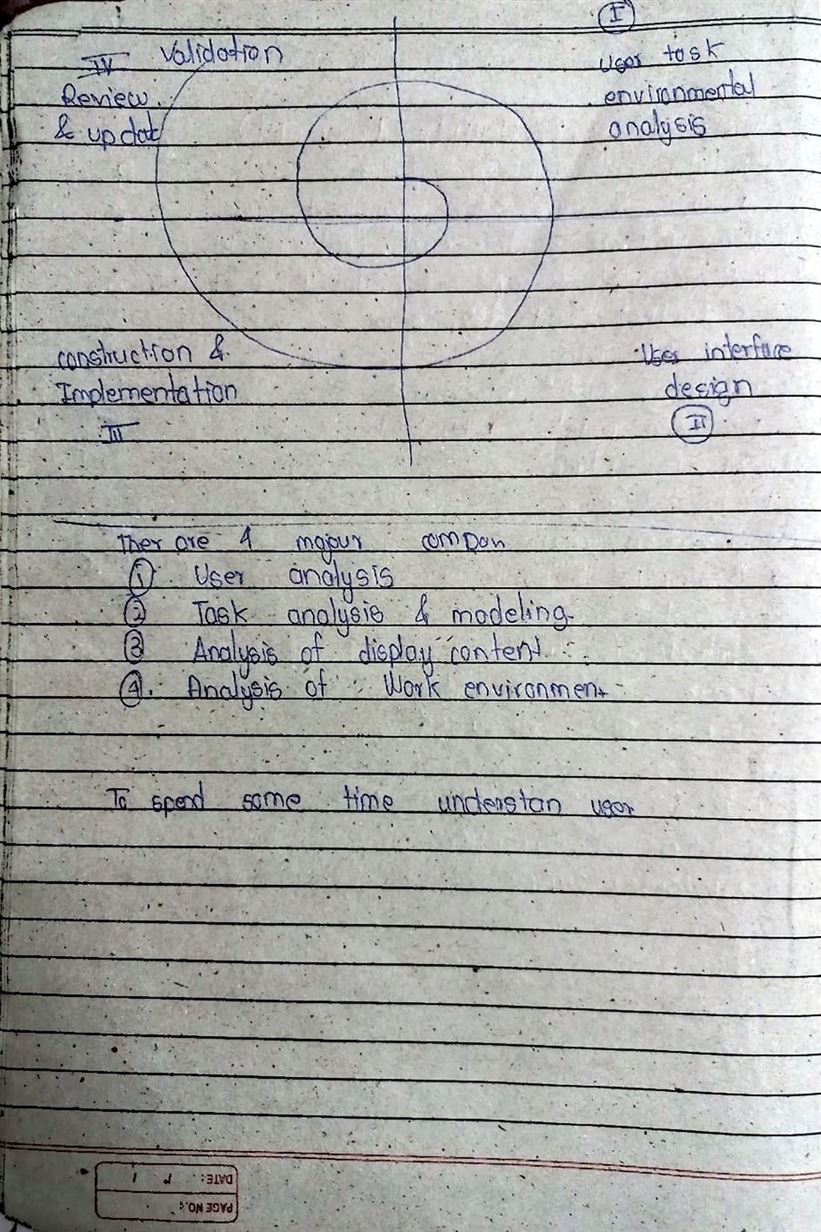 I
IV Validation
Review
& updat
User task
environmental
analysis
construction &
Implementation
III
User interface
design
II
Ther are 4 majour compon
1 User analysis
2 Task analysis & modeling.
3 Analysis of display content.
4. Analysis of Work environment
To spend some time understan user
PAGE NO.:
DATE: / /